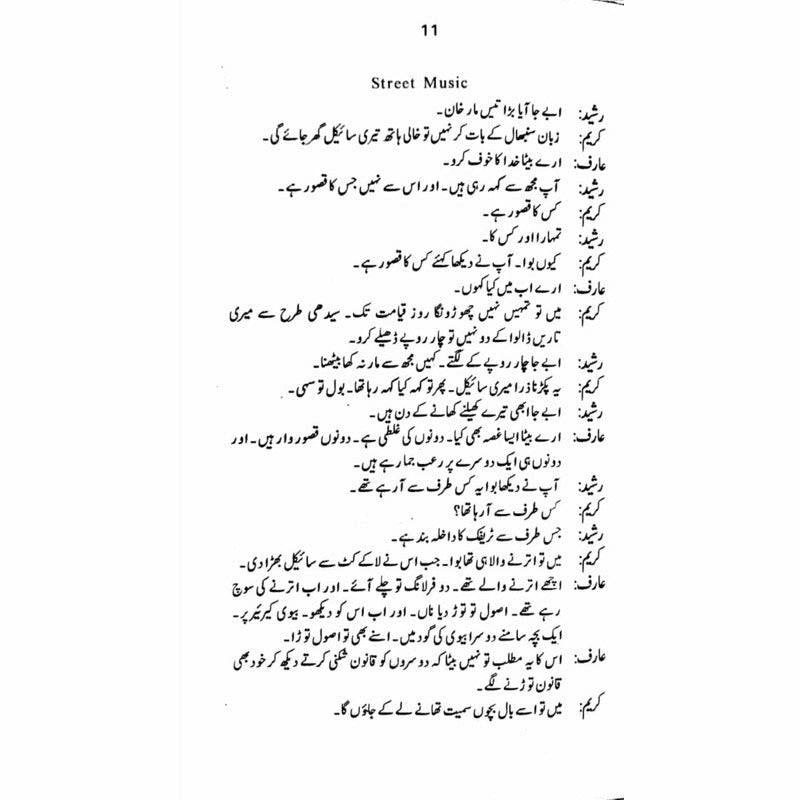 11
Street Music
رشید: ابے جا آیا بڑا تیس مار خان۔
کریم: زبان سنبھال کے بات کر نہیں تو خالی ہاتھ تیری سائیکل گھر جائے گی۔
عارف: ارے بیٹا خدا کا خوف کرو۔
رشید: آپ مجھ سے کہہ رہی ہیں۔ اور اس سے نہیں جس کا قصور ہے۔
کریم: کس کا قصور ہے۔
رشید: تمہارا اور کس کا۔
کریم: کیوں بوا۔ آپ نے دیکھا کہئے کس کا قصور ہے۔
عارف: ارے اب میں کیا کہوں۔
کریم: میں تو تمہیں نہیں چھوڑونگا روز قیامت تک۔ سیدھی طرح سے میری
تاریں ڈالوا کے دو نہیں تو چار روپے ڈھیلے کرو۔
رشید: ابے جا چار روپے کے لگتے۔ کہیں مجھ سے مار نہ کھا بیٹھنا۔
کریم: یہ پکڑنا ذرا میری سائیکل۔ پھر تو کہہ کیا کہہ رہا تھا۔ بول تو سہی۔
رشید: ابے جا ابھی تیرے کھیلنے کھانے کے دن ہیں۔
عارف: ارے بیٹا ایسا غصہ بھی کیا۔ دونوں کی غلطی ہے۔ دونوں قصور وار ہیں۔ اور
دونوں ہی ایک دوسرے پر رعب جما رہے ہیں۔
رشید: آپ نے دیکھا بوا یہ کس طرف سے آ رہے تھے۔
کریم: کس طرف سے آ رہا تھا؟
رشید: جس طرف سے ٹریفک کا داخلہ بند ہے۔
کریم: میں تو اترنے والا ہی تھا بوا۔ جب اس نے لا کے کٹ سے سائیکل بھڑا دی۔
عارف: اچھے اترنے والے تھے۔ دو فرلانگ تو چلے آئے۔ اور اب اترنے کی سوچ
رہے تھے۔ اصول تو توڑ دیا ناں۔ اور اب اس کو دیکھو۔ بیوی کیرئیر پر۔
ایک بچہ سامنے دوسرا بیوی کی گود میں۔ اسنے بھی تو اصول توڑا۔
عارف: اس کا یہ مطلب تو نہیں بیٹا کہ دوسروں کو قانون شکنی کرتے دیکھ کر خود بھی
قانون توڑنے لگے۔
کریم: میں تو اسے بال بچوں سمیت تھانے لے کے جاؤں گا۔